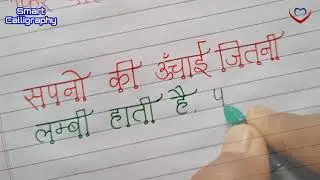 Smart
Calligraphy
सपनो की ऊँचाई जितनी
लम्बी हाती है. प